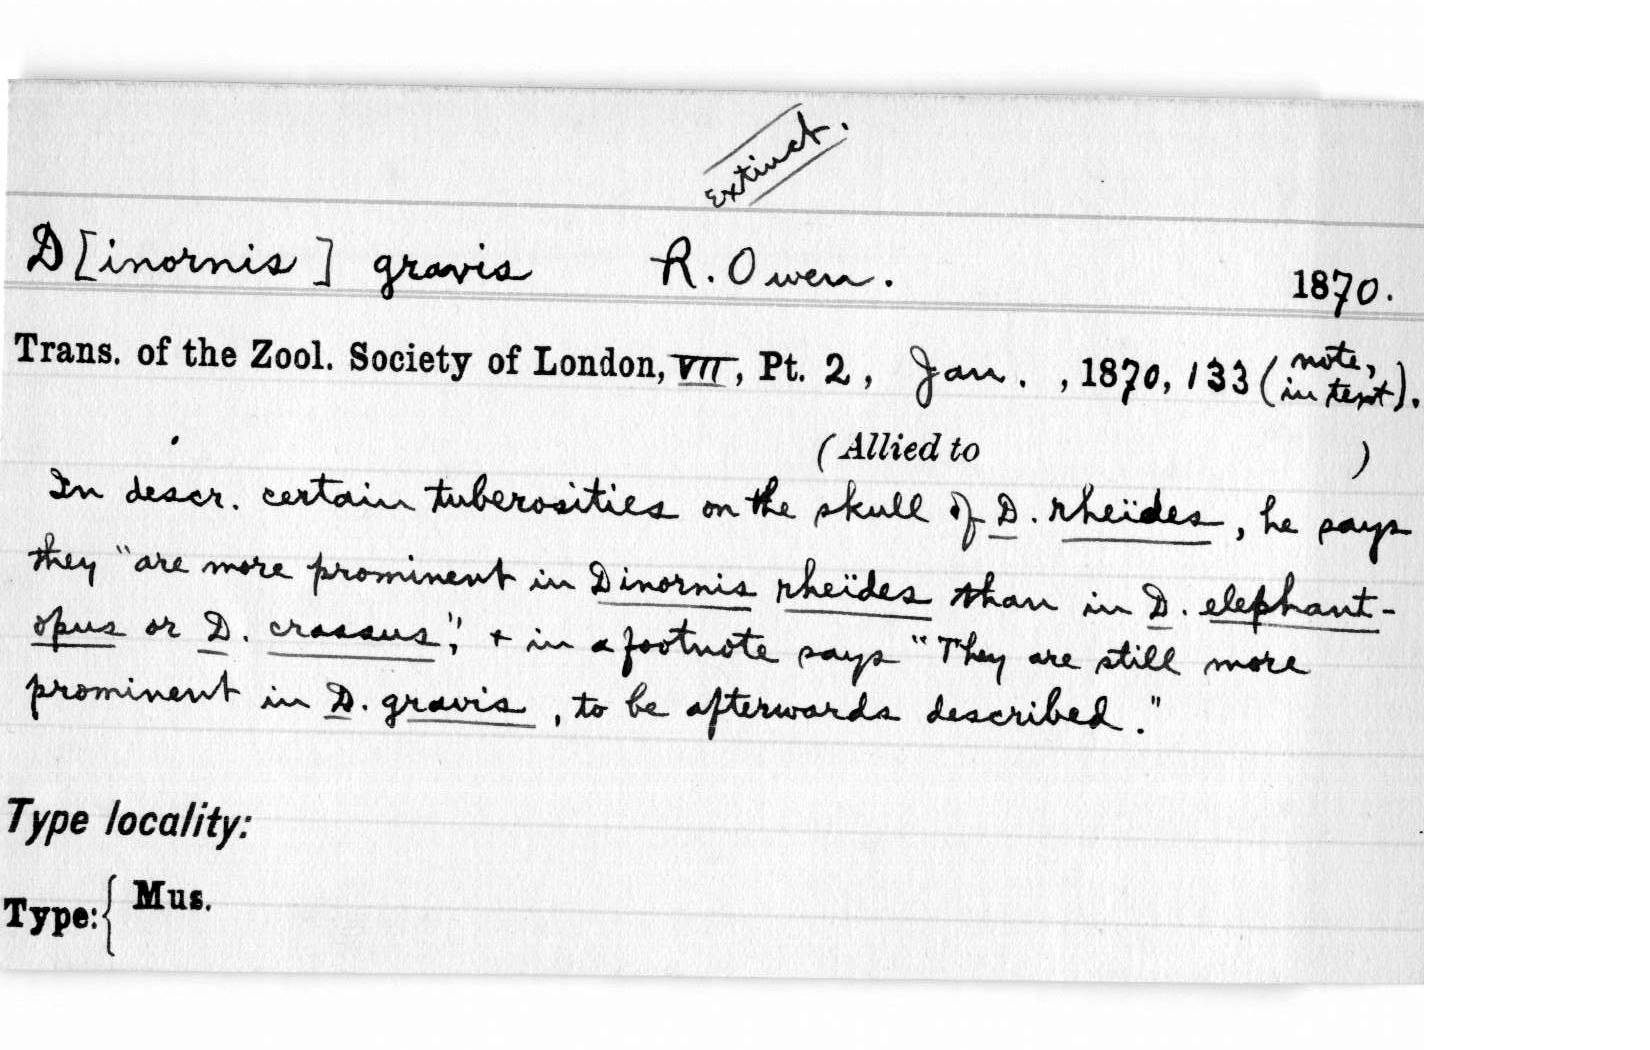 Extinct.
D[inornis] gravis R. Owen. 1870.
Trans. of the Zool. Society of London, VII, Pt. 2, Jan. , 1870, 133 (note, in text).
(Allied to )
In descr. certain tuberosities on the skull of D. rheïdes, he says
they "are more prominent in Dinornis rheïdes than in D. elephant-
opus or D. crassus", + in a footnote says "They are still more
prominent in D. gravis, to be afterwards described."
Type locality:
Type: { Mus.